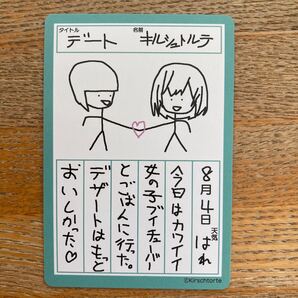 タイトル デート
名前 キルシュトルテ
8月4日 天気 はれ
今日はカワイイ
女の子ブイチューバー
とごはんに行った。
デザートはもっと
おいしかった♡
©Kirschtorte